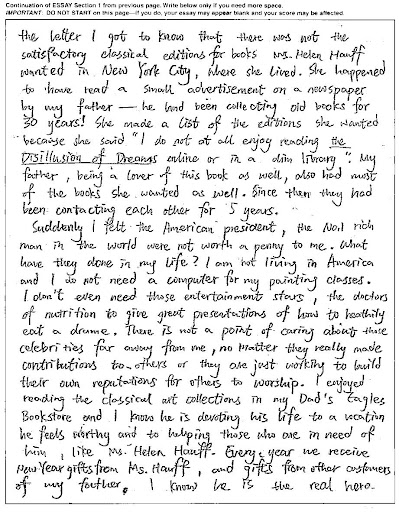 Continuation of ESSAY Section 1 from previous page. Write below only if you need more space.
IMPORTANT: DO NOT START on this page—if you do, your essay may appear blank and your score may be affected.
the letter I got to know that there was not the
satisfactory classical editions for books Ms. Helen Hauff
wanted in New York City, where she lived. She happened
to have read a small advertisement on a newspaper
by my father — he had been collecting old books for
30 years! She made a list of the editions she wanted
because she said "I do not at all enjoy reading the
Disillusion of Dreams online or in a dim library". My
father, being a lover of this book as well, also had most
of the books she wanted as well. Since then they had
been contacting each other for 5 years.
Suddenly I felt the American president, the No.1 rich
man in the world were not worth a penny to me. What
have they done in my life? I am not living in America
and I do not need a computer for my painting classes.
I don't even need those entertainment stars, the doctors
of nutrition to give great presentations of how to healthily
eat a drume. There is not a point of caring about those
celebrities far away from me, no matter they really made
contributions to others or they are just working to build
their own reputations for others to worship. I enjoyed
reading the classical art collections in my Dad's Eagles
Bookstore and I know he is devoting his life to a vocation
he feels worthy and to helping those who are in need of
him, like Ms. Helen Hauff. Every year we receive
New Year gifts from Ms. Hauff, and gifts from other customers
of my father. I know he is the real hero.